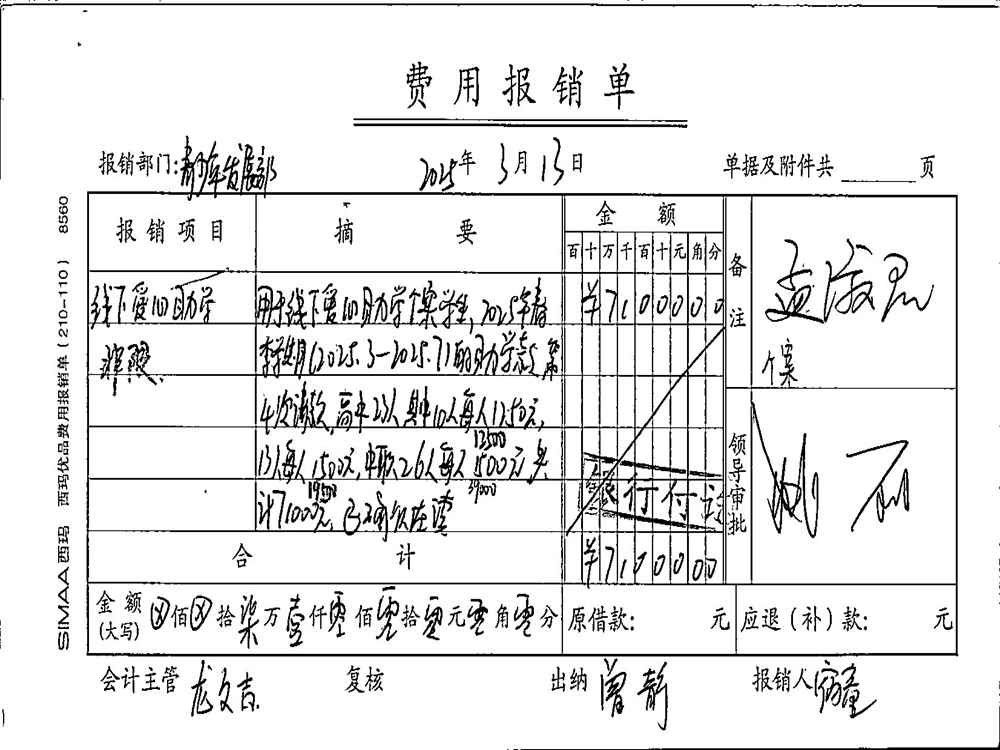 费用报销单
报销部门:青少年发展部 2025年 3月13日 单据及附件共 页
报销项目 摘要 金额 备注
百十万千百十元角分
线下爱心助学 用于线下爱心助学个案学生,2025年春 ¥7100000
季学期(2025.3-2025.7)的助学款 第
个案
4次请款,高中23人其中10人每人1250元,
12500
13人每人1500元,中职26人每人1500元共
19500 39000
计71000元,已确认在读
银行付讫
领导审批
合计 ¥7100000
金额(大写) ⊗佰⊗拾柒万壹仟零佰零拾零元零角零分 原借款: 元 应退(补)款: 元
会计主管 龙文吉 复核 出纳 曾静 报销人
SIMAA西玛 西玛优品费用报销单(210-110) 8560